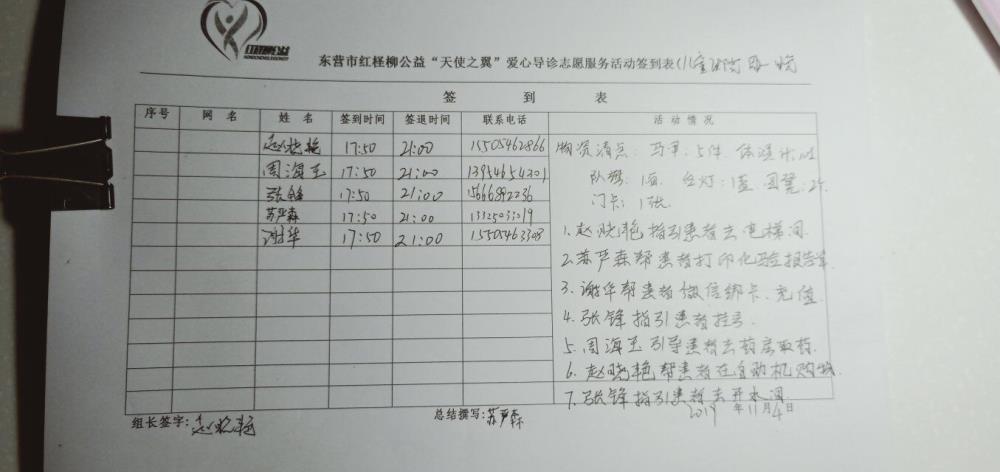 红柽柳公益
东营市红柽柳公益“天使之翼”爱心导诊志愿服务活动签到表(儿童
签 到 表
序号 网 名 姓 名 签到时间 签退时间 联系电话 活 动 情 况
赵晓艳 17:50 21:00 15505462866
周海玉 17:50 21:00 13954654201
张锋 17:50 21:00 15666892236
苏严森 17:50 21:00
谢华 17:50 21:00 15505463308
物资清点:马甲:5件 体温计:
队旗:1面 台灯:1盏 圆凳:2个
门卡:1张.
1.赵晓艳指引患者去电梯间.
2.苏严森帮患者打印化验报告单
3.谢华帮患者微信绑卡、充值.
4.张锋指引患者挂号.
5.周海玉引导患者去药房取药.
6.赵晓艳帮患者在自助机购
7.张锋指引患者去开水间.
组长签字:赵晓艳 总结撰写:苏严森 2019 年11月4日